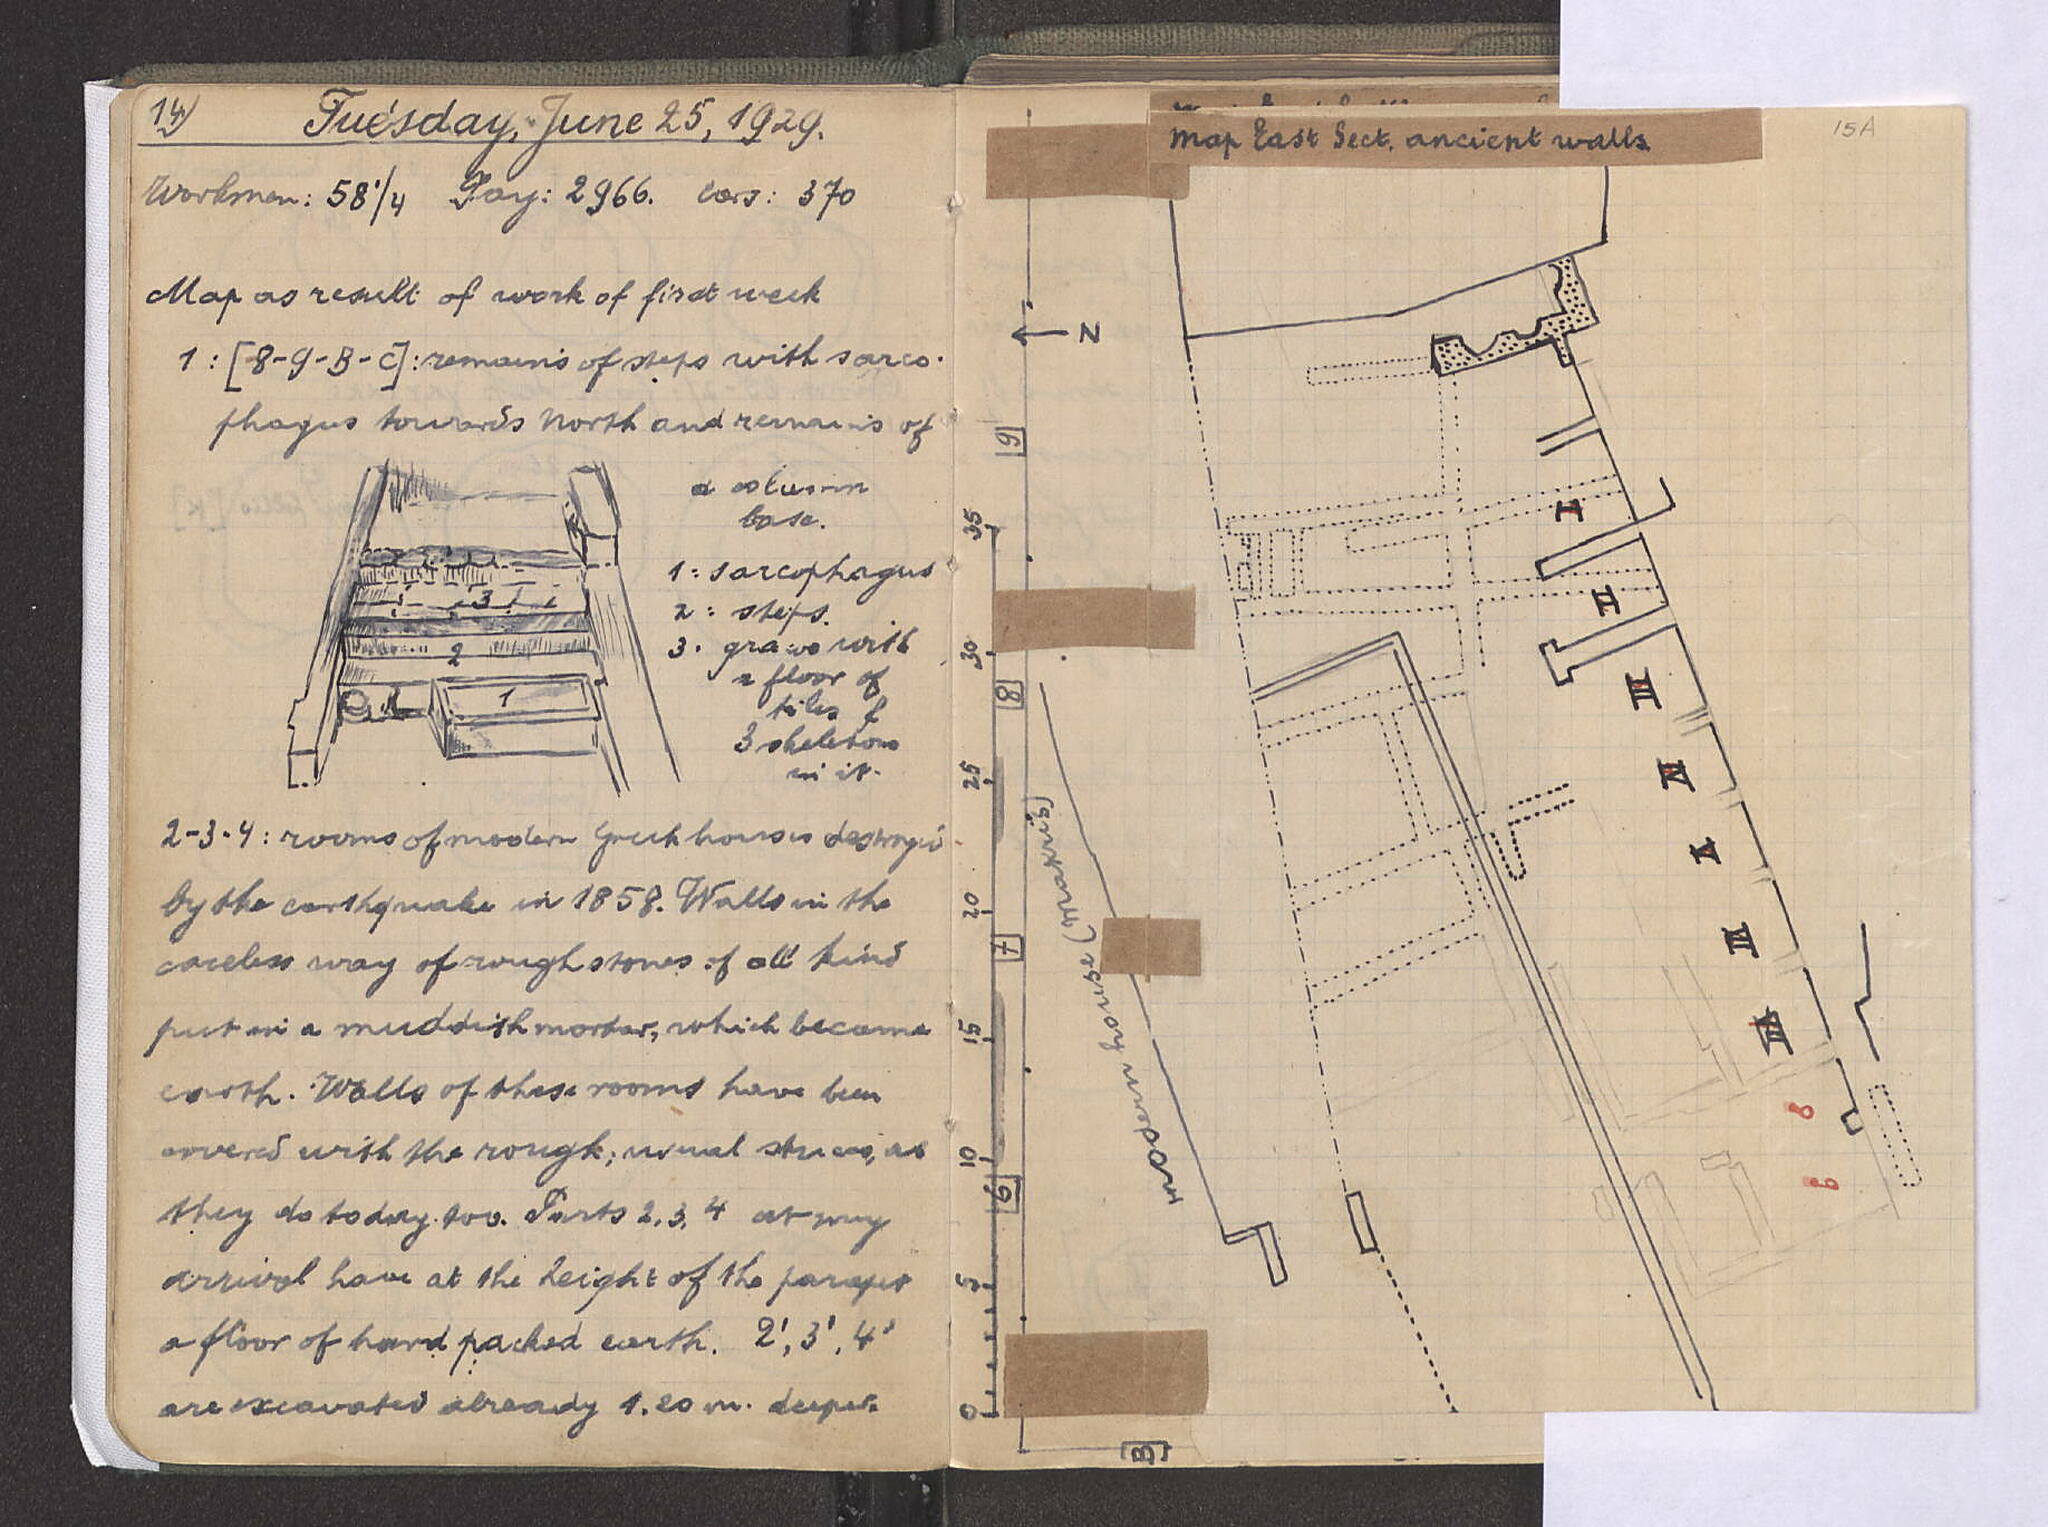 14)
Tuesday, June 25, 1929.
Workmen: 58 1/4 Pay: 2966. Cars: 370
Map as result of work of first week
1: [8-9-B-C]: remains of steps with sarco-
phagus towards North and remains of
a column
base.
1: sarcophagus
2: steps.
3. grave with
a floor of
tiles &
3 skeletons
in it.
3
2
1
2-3-4: rooms of modern Greek houses destroyed
by the earthquake in 1858. Walls in the
careless way of rough stones of all kind
put in a muddish mortar, which became
earth. Walls of these rooms have been
covered with the rough, usual stucco, as
they do today too. Parts 2, 3, 4 at my
arrival have at the height of the parapet
a floor of hard packed earth. 2', 3', 4'
are excavated already 1.20 m. deeper.
Map East Sect. ancient walls
15A
N
[9]
35
30
[8]
25
20
[7]
15
10
[6]
5
0
[B]
modern house (Makris)
I
II
III
IV
V
VI
VII
8
9